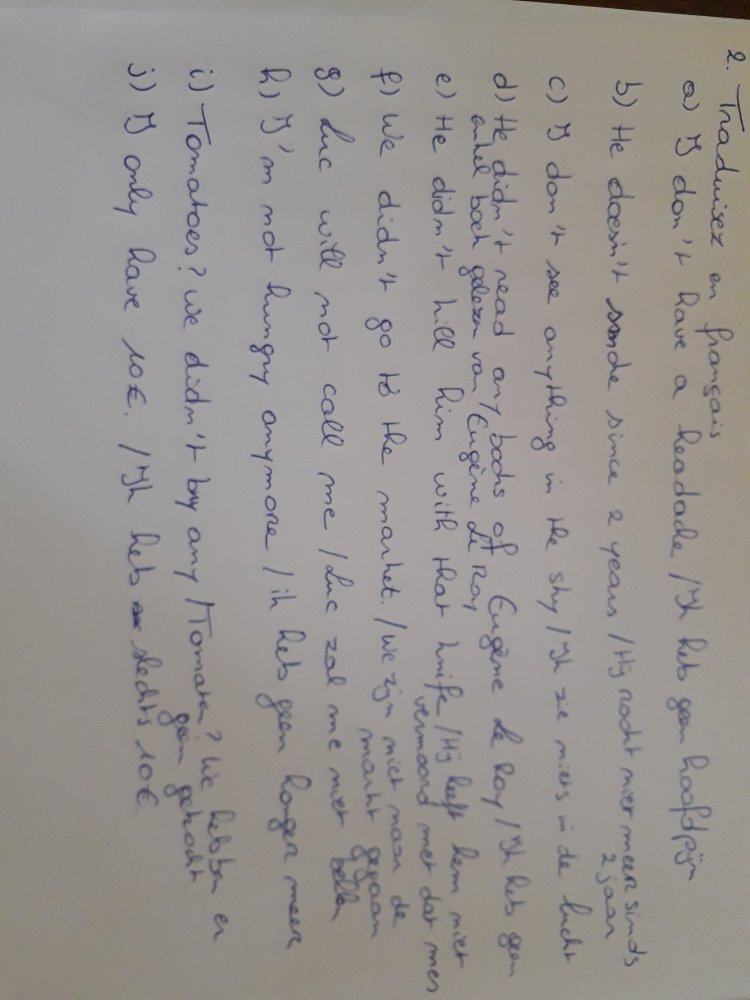 2. Traduisez en français
a) I don't have a headache / Ik heb geen hoofdpijn
b) He doesn't smoke since 2 years / Hij rookt niet meer sinds
2 jaar
c) I don't see anything in the sky / Ik zie niets in de lucht
d) He didn't read any books of Eugène Le Roy / Ik heb geen
enkel boek gelezen van Eugène Le Roy
e) He didn't kill him with that knife / Hij heeft hem niet
vermoord met dat mes
f) We didn't go to the market. / We zijn niet naar de
markt gegaan
g) Luc will not call me / Luc zal me niet bellen
h) I'm not hungry anymore / ik heb geen honger meer
i) Tomatoes? We didn't buy any / Tomaten? We hebben er
geen gekocht.
j) I only have 10€. / Ik heb slechts 10€.